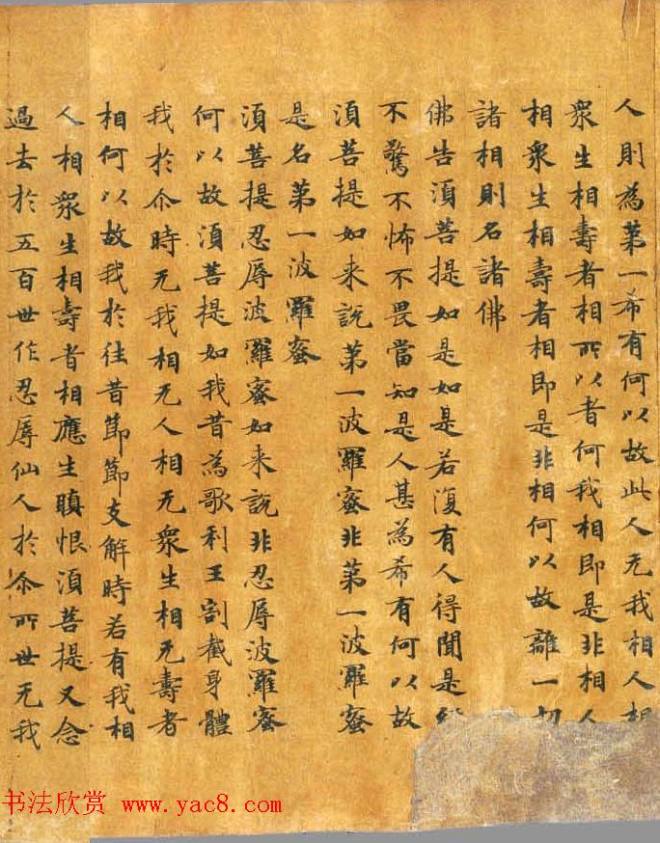 人則為第一希有何以故此人无我相人相
衆生相壽者相所以者何我相即是非相人
相衆生相壽者相即是非相何以故離一切
諸相則名諸佛
佛告湏菩提如是如是若復有人得聞是
不驚不怖不畏當知是人甚為希有何以故
湏菩提如来說第一波羅蜜非第一波羅蜜
是名第一波羅蜜
湏菩提忍辱波羅蜜如来說非忍辱波羅蜜
何以故湏菩提如我昔為歌利王割截身體
我於尒時无我相无人相无衆生相无壽者
相何以故我於往昔節節支解時若有我相
人相衆生相壽者相應生瞋恨湏菩提又念
過去於五百世作忍辱仙人於尒所世无我
书法欣赏 www.yac8.com